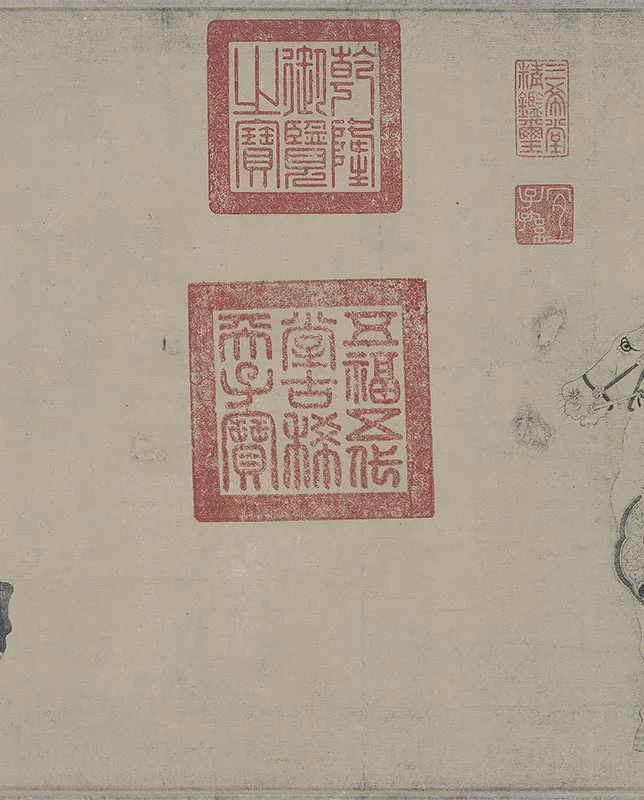 三希堂
精鑑璽
宜
子孫
乾隆
御覽
之寶
五福五代
堂古稀
天子寶